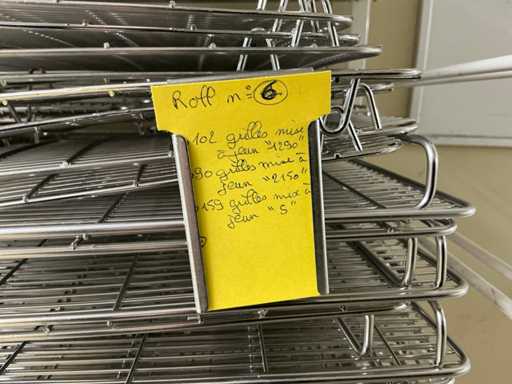 Roll n° 6
102 grilles mise
à jeun "1290"
90 grilles mise à
jeun "2150"
159 grilles mix à
jeun "S"